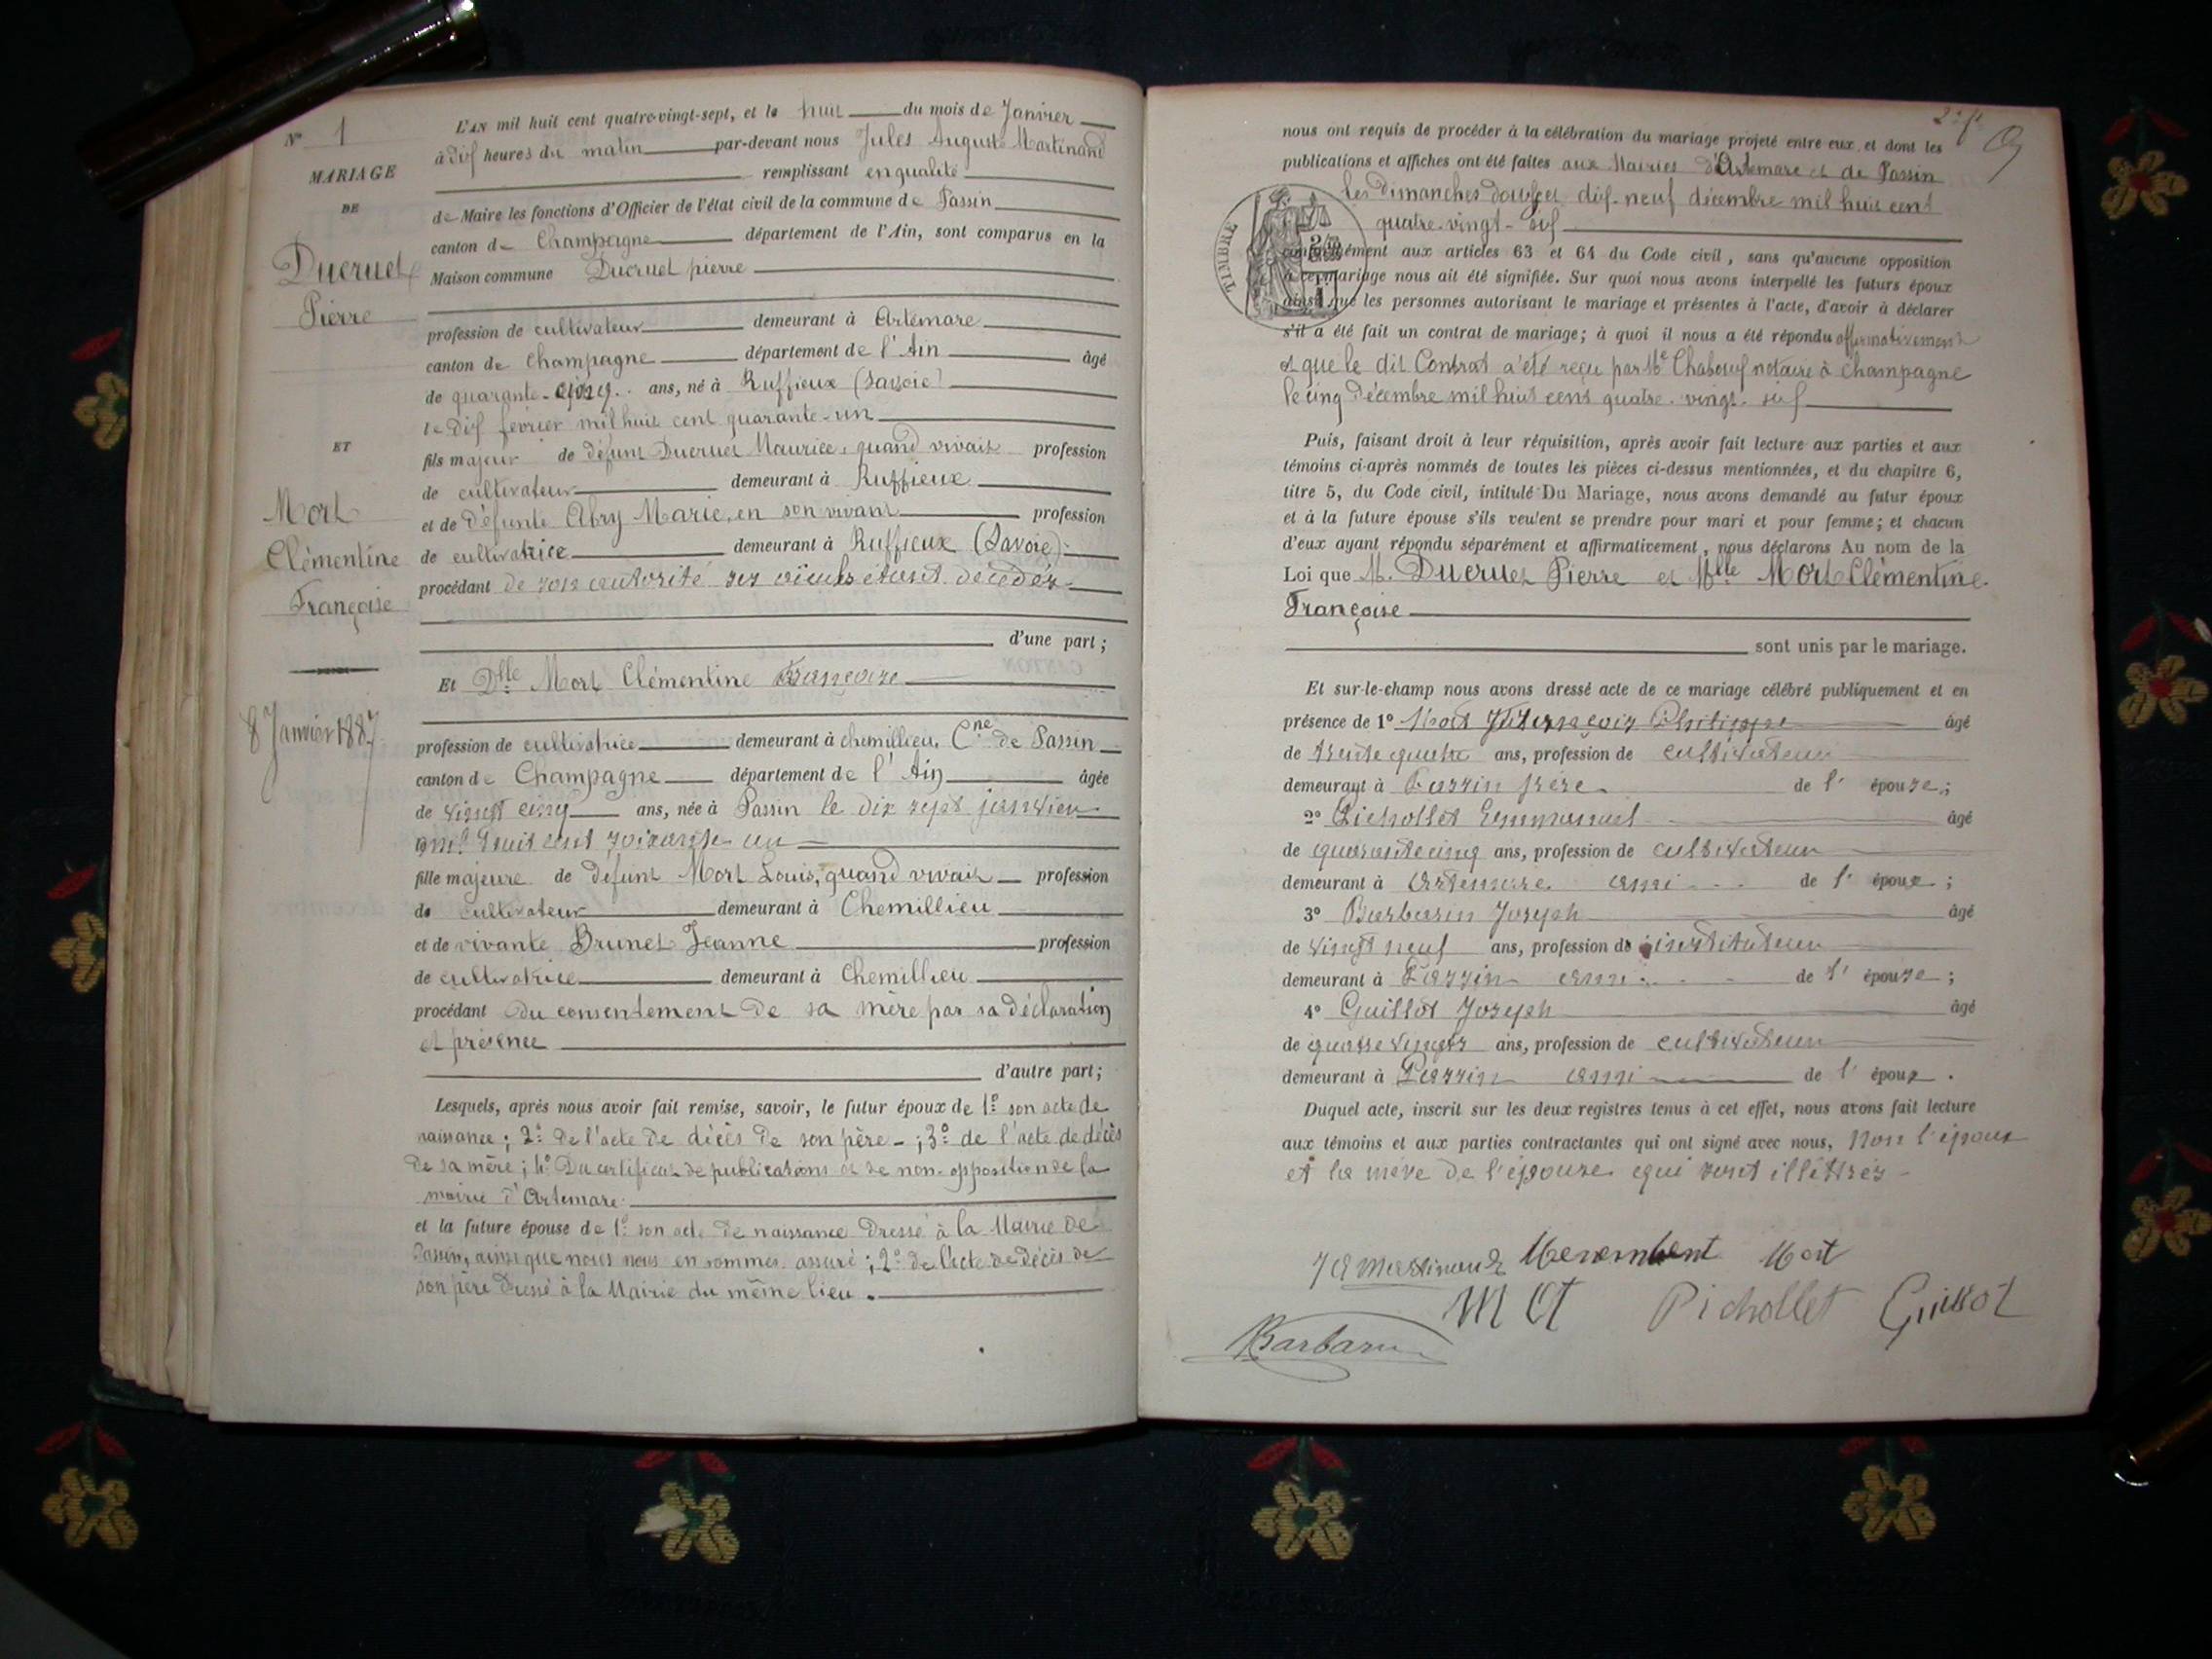 N° 1
MARIAGE
DE
Ducruet
Pierre
ET
Mort
Clémentine
Françoise
8 Janvier 1887
L'AN mil huit cent quatre-vingt-sept, et le huit du mois de Janvier
à dix heures du matin par-devant nous Jules Auguste Martinand
remplissant en qualité
de Maire les fonctions d'Officier de l'état civil de la commune de Passin
canton de Champagne département de l'Ain, sont comparus en la
Maison commune Ducruet pierre
profession de cultivateur demeurant à Artemare
canton de Champagne département de l'Ain âgé
de quarante-cinq ans, né à Ruffieux (Savoie)
le dix février mil huit cent quarante-un
fils majeur de défunt Ducruet Maurice, quand vivait profession
de cultivateur demeurant à Ruffieux
et de défunte Abry Marie, en son vivant profession
de cultivatrice demeurant à Ruffieux (Savoie)
procédant de son autorité ses aïeuls étant décédés
d'une part ;
Et Dlle Mort Clémentine Françoise
profession de cultivatrice demeurant à chemillieu, Cne de Passin
canton de Champagne département de l'Ain âgée
de vingt cinq ans, née à Passin le dix sept janvier
mil huit cent soixante un
fille majeure de défunt Mort Louis, quand vivait profession
de cultivateur demeurant à Chemillieu
et de vivante Brunet Jeanne profession
de cultivatrice demeurant à Chemillieu
procédant du consentement de sa mère par sa déclaration
et présence
d'autre part ;
Lesquels, après nous avoir fait remise, savoir, le futur époux de 1° son acte de
naissance ; 2° de l'acte de décès de son père - ; 3° de l'acte de décès
de sa mère ; 4° Du certificat de publications et de non-opposition de la
mairie d'Artemare.
et la future épouse de 1° son acte de naissance dressé à la Mairie de
Passin, ainsi que nous nous en sommes assuré ; 2° de l'acte de décès de
son père dressé à la Mairie du même lieu.
nous ont requis de procéder à la célébration du mariage projeté entre eux et dont les
publications et affiches ont été faites aux Mairies d'Artemare et de Passin
les dimanches douze et dix-neuf décembre mil huit cent
quatre-vingt-six
TIMBRE
conformément aux articles 63 et 64 du Code civil, sans qu'aucune opposition
à ce mariage nous ait été signifiée. Sur quoi nous avons interpellé les futurs époux
ainsi que les personnes autorisant le mariage et présentes à l'acte, d'avoir à déclarer
s'il a été fait un contrat de mariage ; à quoi il nous a été répondu affirmativement
et que le dit Contrat a été reçu par Me Chaboeuf notaire à Champagne
le cinq décembre mil huit cent quatre-vingt-six
Puis, faisant droit à leur réquisition, après avoir fait lecture aux parties et aux
témoins ci-après nommés de toutes les pièces ci-dessus mentionnées, et du chapitre 6,
titre 5, du Code civil, intitulé Du Mariage, nous avons demandé au futur époux
et à la future épouse s'ils veulent se prendre pour mari et pour femme ; et chacun
d'eux ayant répondu séparément et affirmativement, nous déclarons Au nom de la
Loi que M. Ducruet Pierre et Mlle Mort Clémentine
Françoise
sont unis par le mariage.
Et sur-le-champ nous avons dressé acte de ce mariage célébré publiquement et en
présence de 1° Mort Philippe âgé
de trente quatre ans, profession de cultivateur
demeurant à Passin frère de l'épouse ;
2° Pichollet Emmanuel âgé
de quarante cinq ans, profession de cultivateur
demeurant à Artemare ami de l'époux ;
3° Barbarin Joseph âgé
de vingt neuf ans, profession de instituteur
demeurant à Passin ami de l'épouse ;
4° Guillot Joseph âgé
de quatre vingts ans, profession de cultivateur
demeurant à Passin ami de l'époux.
Duquel acte, inscrit sur les deux registres tenus à cet effet, nous avons fait lecture
aux témoins et aux parties contractantes qui ont signé avec nous, non l'époux
et la mère de l'épouse qui sont illettrés
JA Martinand Mort
Pichollet Guillot
Barbarin